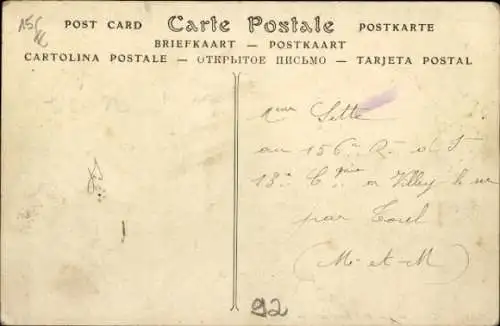 POST CARD Carte Postale POSTKARTE
BRIEFKAART — POSTKAART
CARTOLINA POSTALE — ОТКРЫТОЕ ПИСЬМО — TARJETA POSTAL
au 156e R. d
13e Cgnie Villey le
par Toul
(M-et-M)
92